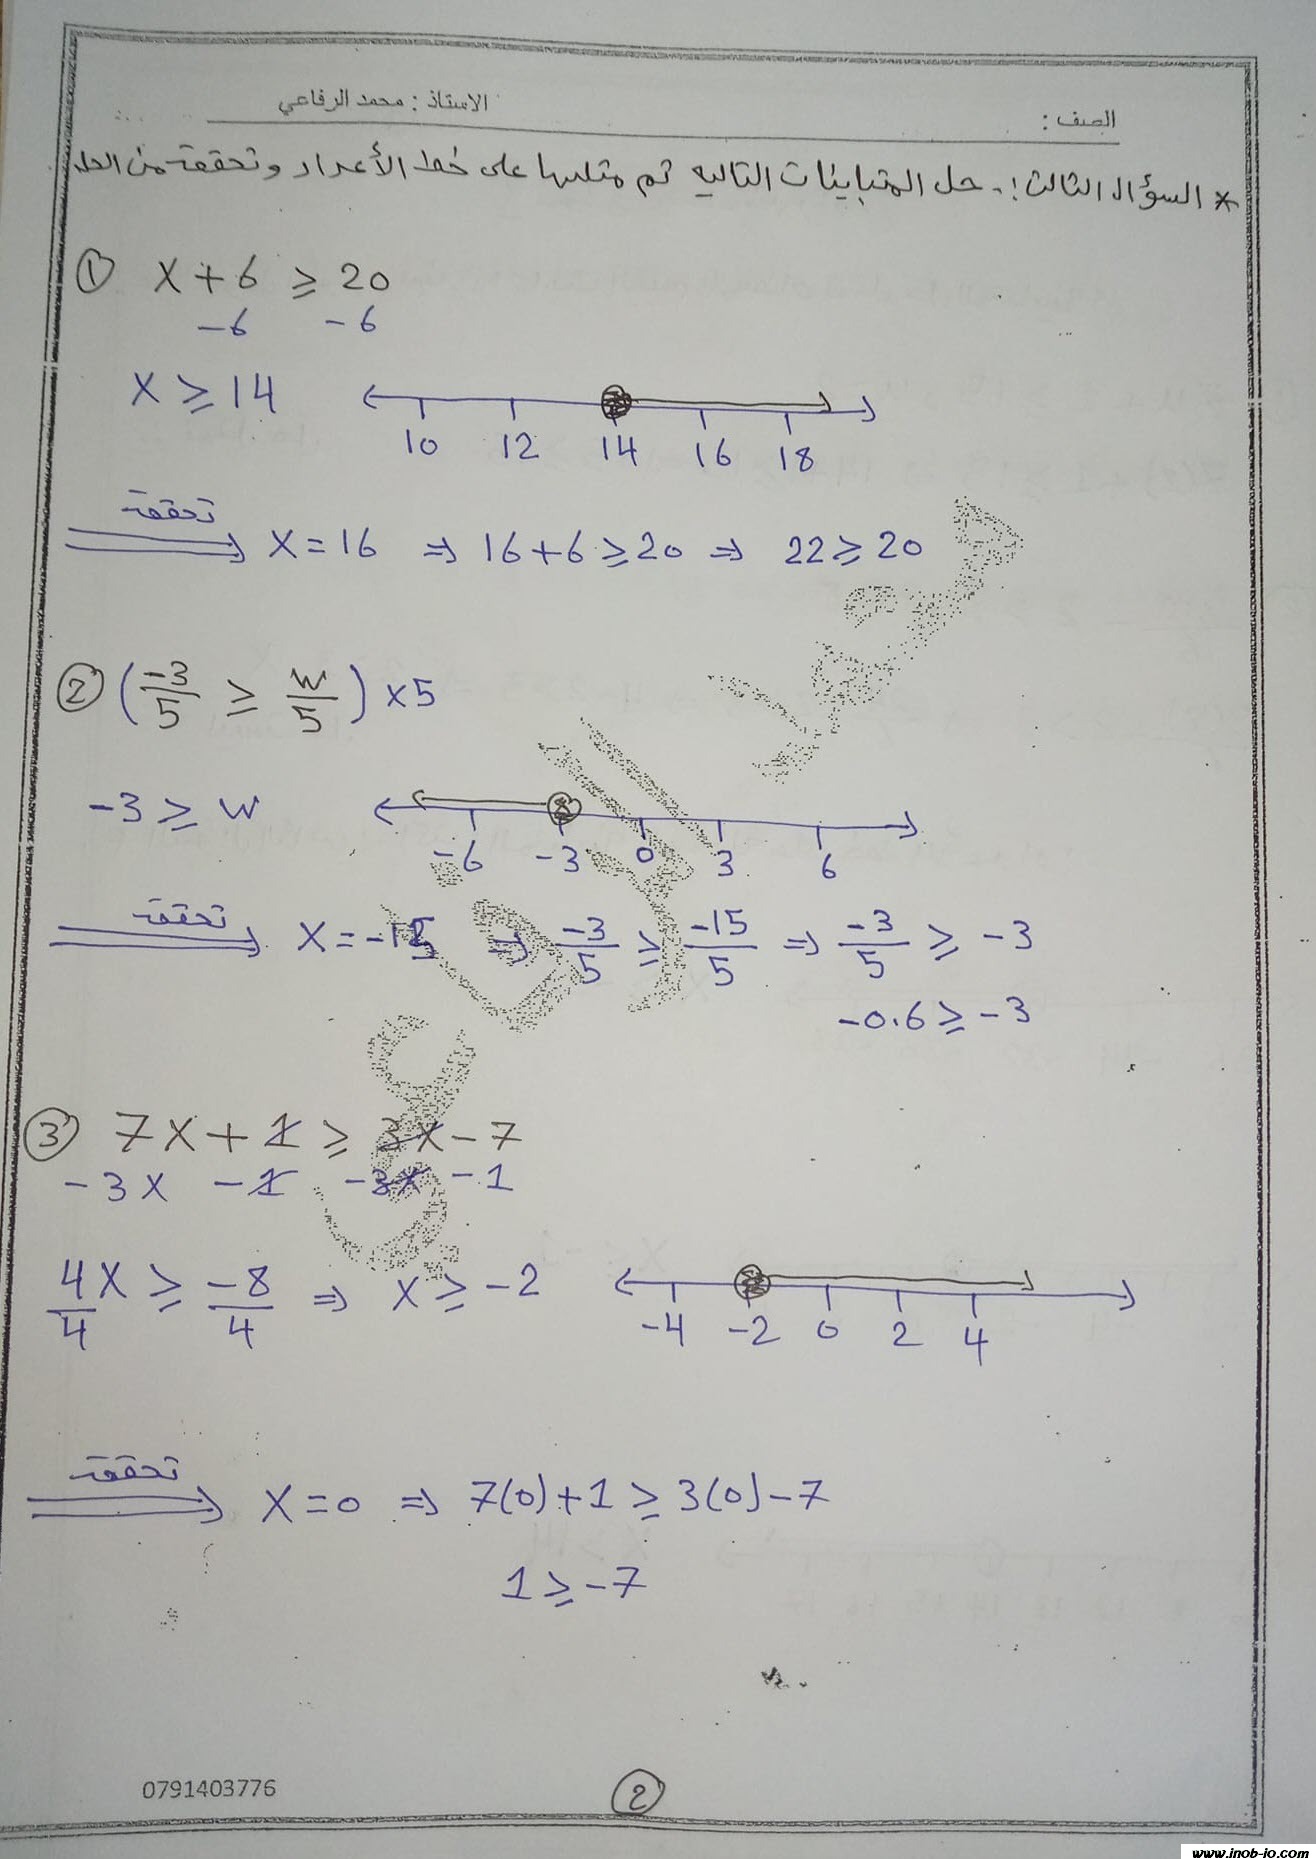 الصف :
الاستاذ : محمد الرفاعي
* السؤال الثالث :- حل المتباينات التاليه ثم مثلها على خط الأعداد وتحققه من الحل
① x + 6 ≥ 20
-6 -6
x ≥ 14
10 12 14 16 18
تحققه
x = 16 ⇒ 16 + 6 ≥ 20 ⇒ 22 ≥ 20
② ( -3/5 ≥ w/5 ) × 5
-3 ≥ w
-6 -3 0 3 6
تحققه
x = -15 ⇒ -3/5 ≥ -15/5 ⇒ -3/5 ≥ -3
-0.6 ≥ -3
③ 7x + 1 ≥ 3x - 7
-3x -1 -3x -1
4x/4 ≥ -8/4 ⇒ x ≥ -2
-4 -2 0 2 4
تحققه
x = 0 ⇒ 7(0) + 1 ≥ 3(0) - 7
1 ≥ -7
0791403776
②
www.jnob-jo.com